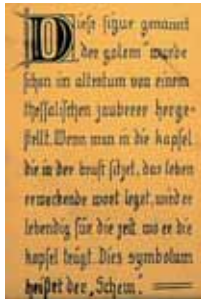 Diese figur genannt
„der golem“ wurde
schon im altertum von einem
thessalischen zauberer herge-
stellt. Wenn man in die kapsel
die in der brust sitzet, das leben
erweckende wort leget, wird er
lebendig für die zeit wo er die
kapsel trägt. Dies symbolum
heißet der „Schem“.